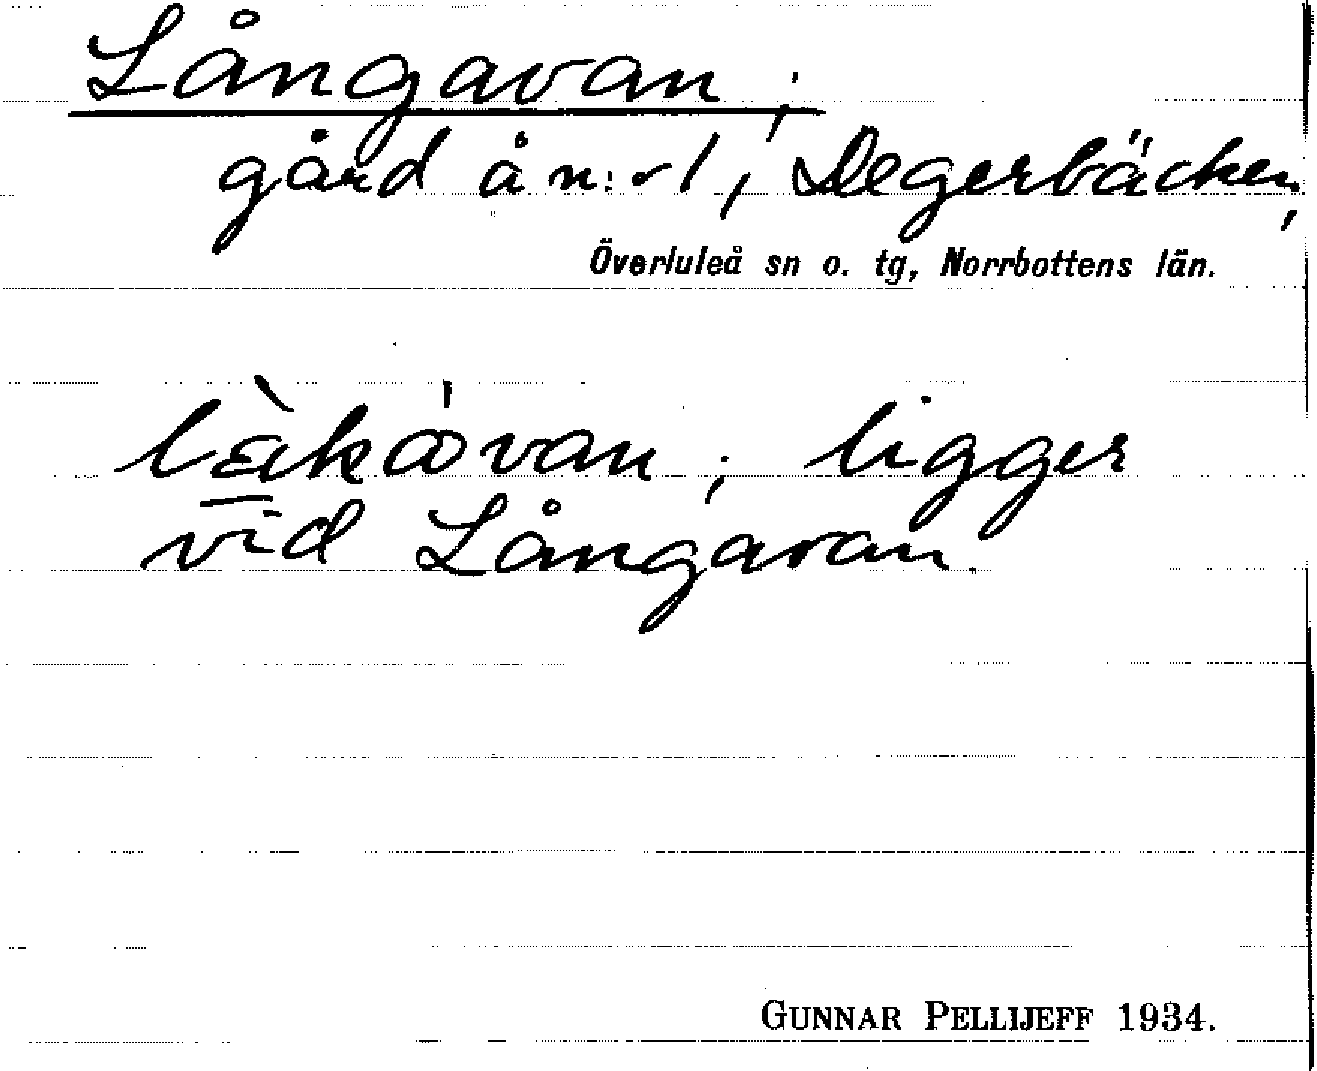 Långavan;
gård å n:r 1, Degerbäcken,
Överluleå sn o. tg, Norrbottens län.
ligger
vid Långavan.
GUNNAR PELLIJEFF 1934.